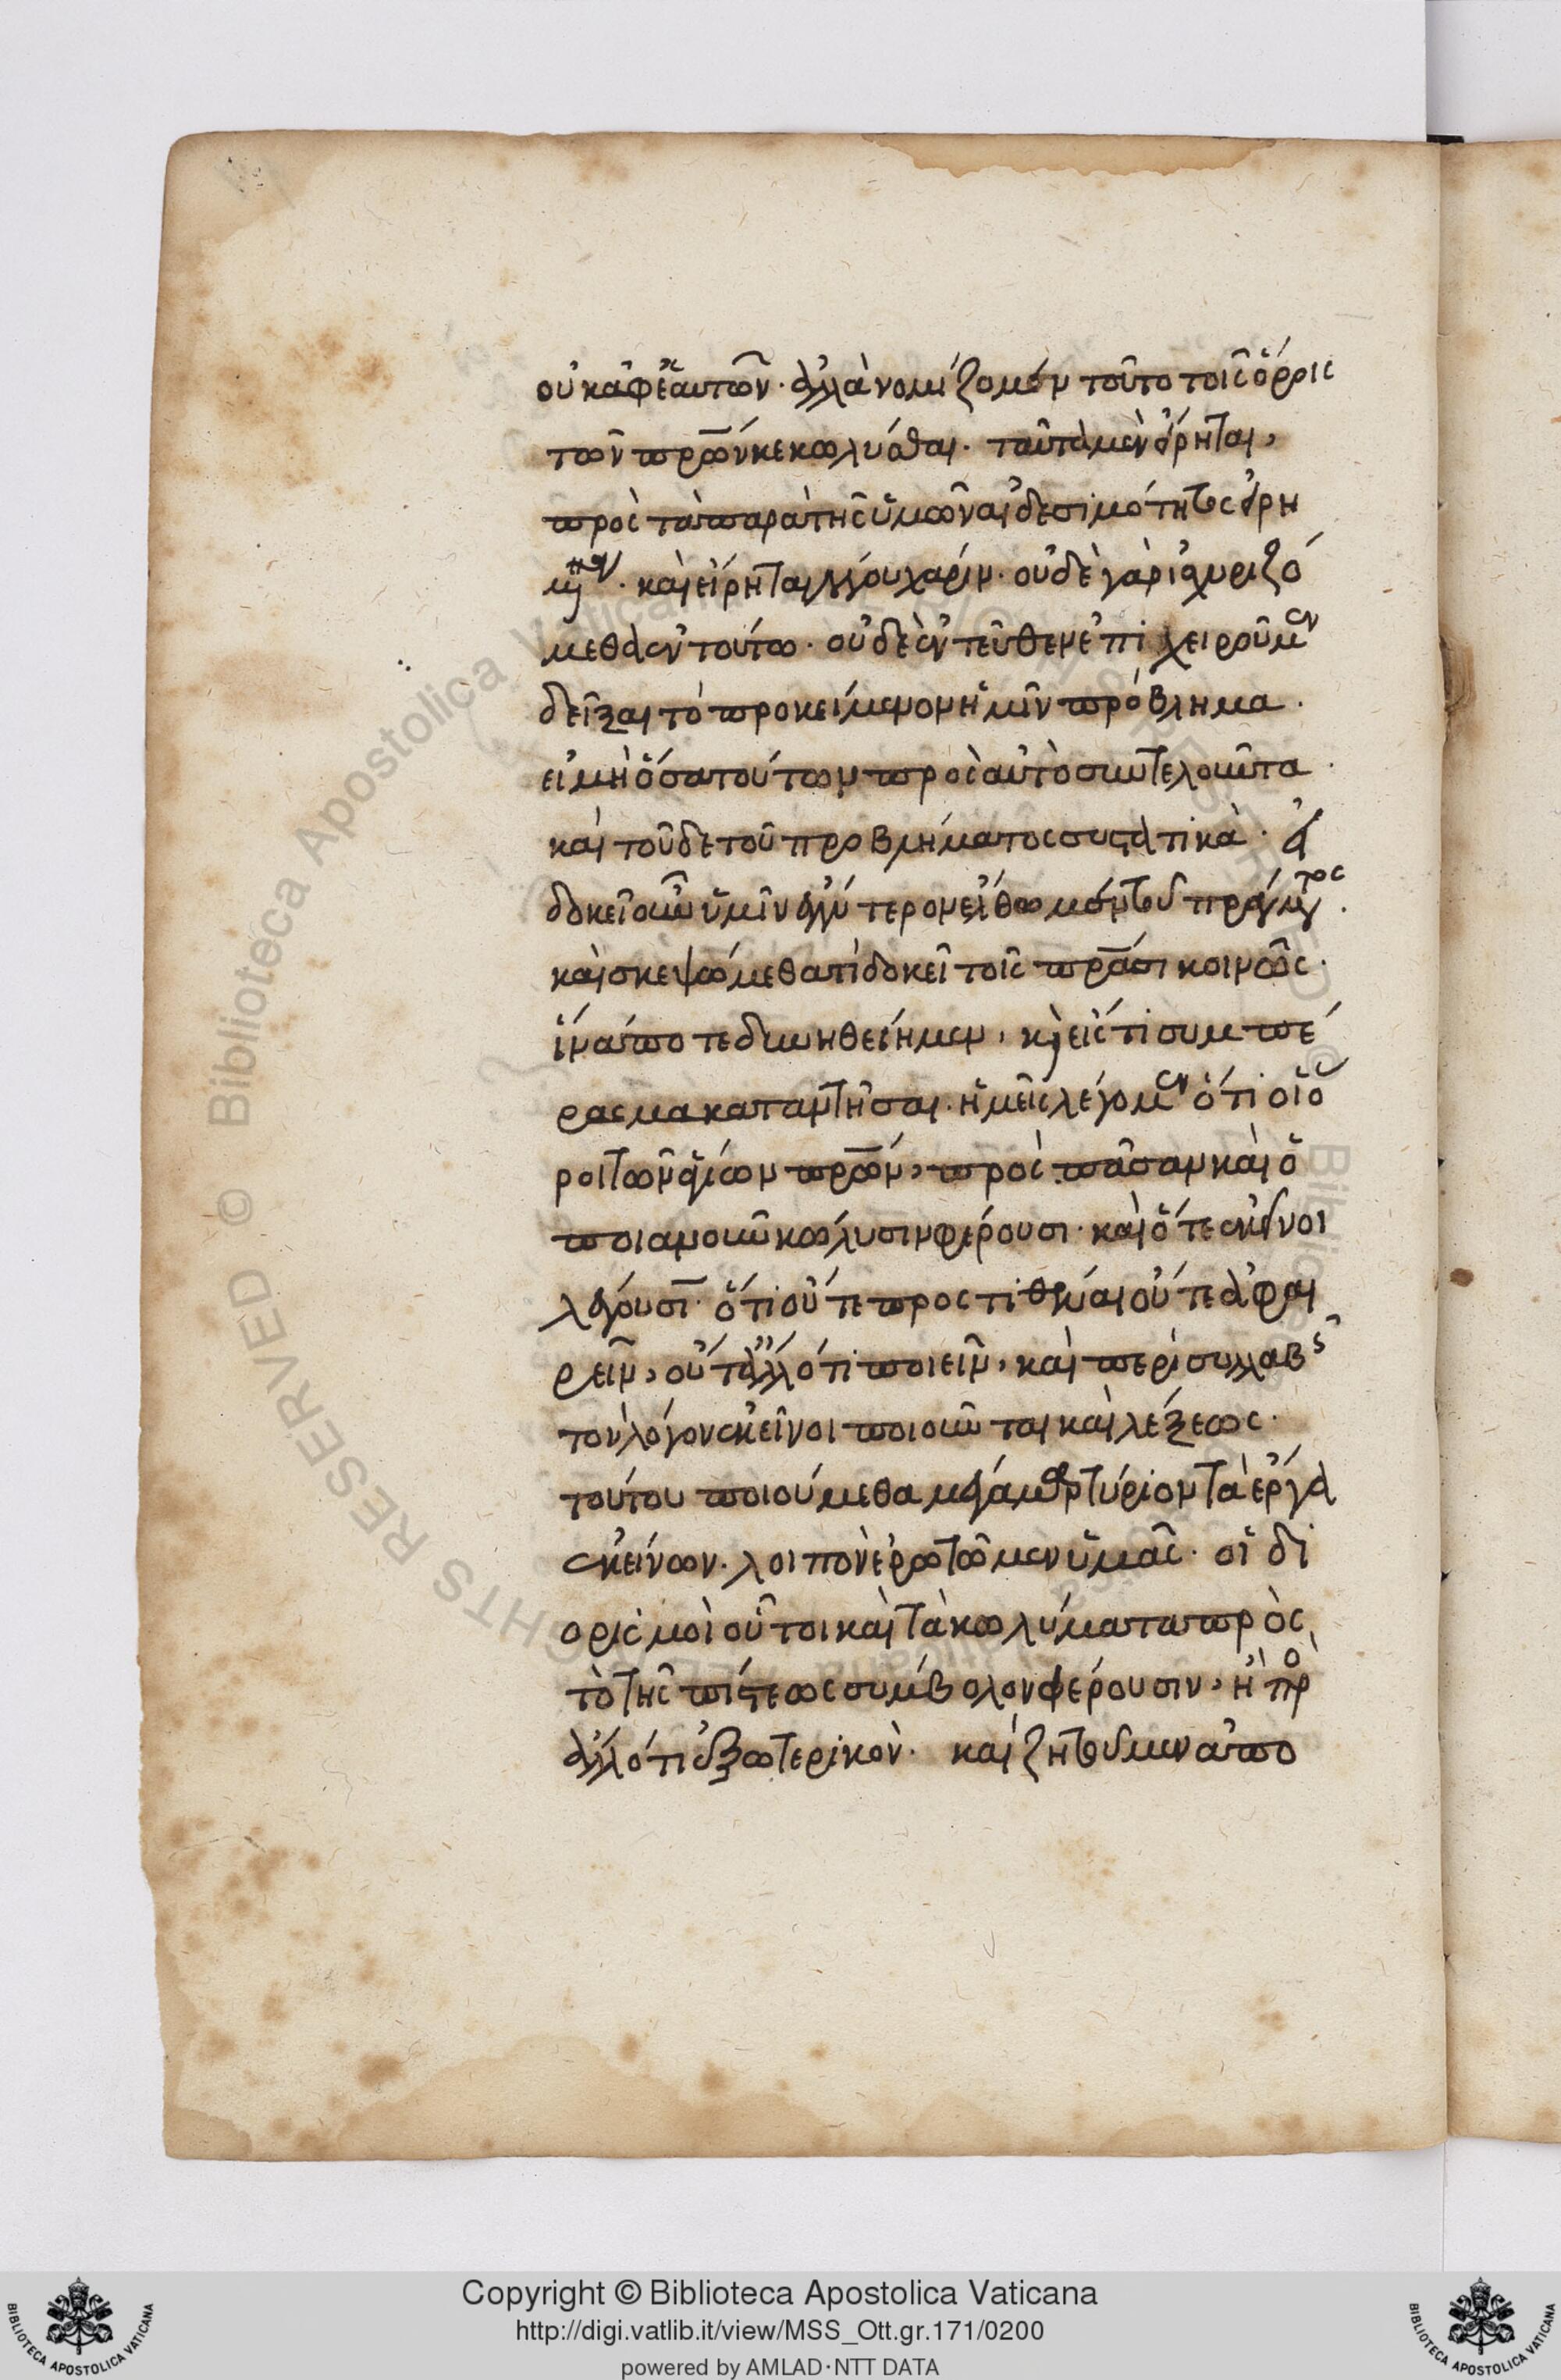 οὐκ ἀφ' ἑαυτῶν. ἀλλὰ νομίζομεν τοῦτο τοῖς ὅροις
τῶν πρων κεκωλύσθαι. ταῦτα μὲν εἴρηται,
πρὸς τὰ παρὰ τῆς ὑμῶν αἰδεσιμότητος εἰρη
μένα. καὶ εἴρηται λόγου χάριν. οὐδὲ γὰρ ἰσχυριζό
μεθα ἐν τούτω. οὐδὲ ἐντεῦθεν ἐπιχειροῦμεν
δεῖξαι τὸ προκείμενον ἡμῖν πρόβλημα.
εἰ μὴ ὅσα τούτων πρὸς αὐτὸ συντελοῦντα.
καὶ τοῦδε τοῦ προβλήματος συστατικὰ. εἰ
δοκεῖ οὖν ὑμῖν ἐγγύτερον ἔλθωμεν τοῦ πράγματος.
καὶ σκεψώμεθα τί δοκεῖ τοῖς πρασι κοινῶς.
ἵνα ποτε δυνηθείημεν, καὶ εἰς τι συμπέ
ρασμα καταντῆσαι. ἡμεῖς λέγομεν ὅτι οἱ ὅ
ροι τῶν ἁγίων πρων, πρὸς πᾶσαν καὶ ὁ
ποιανοῦν κώλυσιν φέρουσι. καὶ ὅτε ἐκεῖνοι
λέγουσι. ὅτι οὔτε προστιθέναι οὔτε ἀφαι
ρεῖν, οὔτ' ἄλλό τι ποιεῖν, καὶ περὶ συλλαβῆς
τὸν λόγον ἐκεῖνοι ποιοῦνται καὶ λέξεως.
τούτου ποιούμεθα μέγα μαρτύριον τὰ ἔργα
ἐκείνων. λοιπὸν ἐρωτῶμεν ὑμᾶς. οἱ δι
ορισμοὶ οὗτοι καὶ τὰ κωλύματα πρὸς
τὸ τῆς πίστεως σύμβολον φέρουσιν, ἢ πρὸ
ἄλλό τι ἐξωτερικὸν. καὶ ζητοῦμεν ἀπο
Copyright © Biblioteca Apostolica Vaticana
http://digi.vatlib.it/view/MSS_Ott.gr.171/0200
powered by AMLAD·NTT DATA